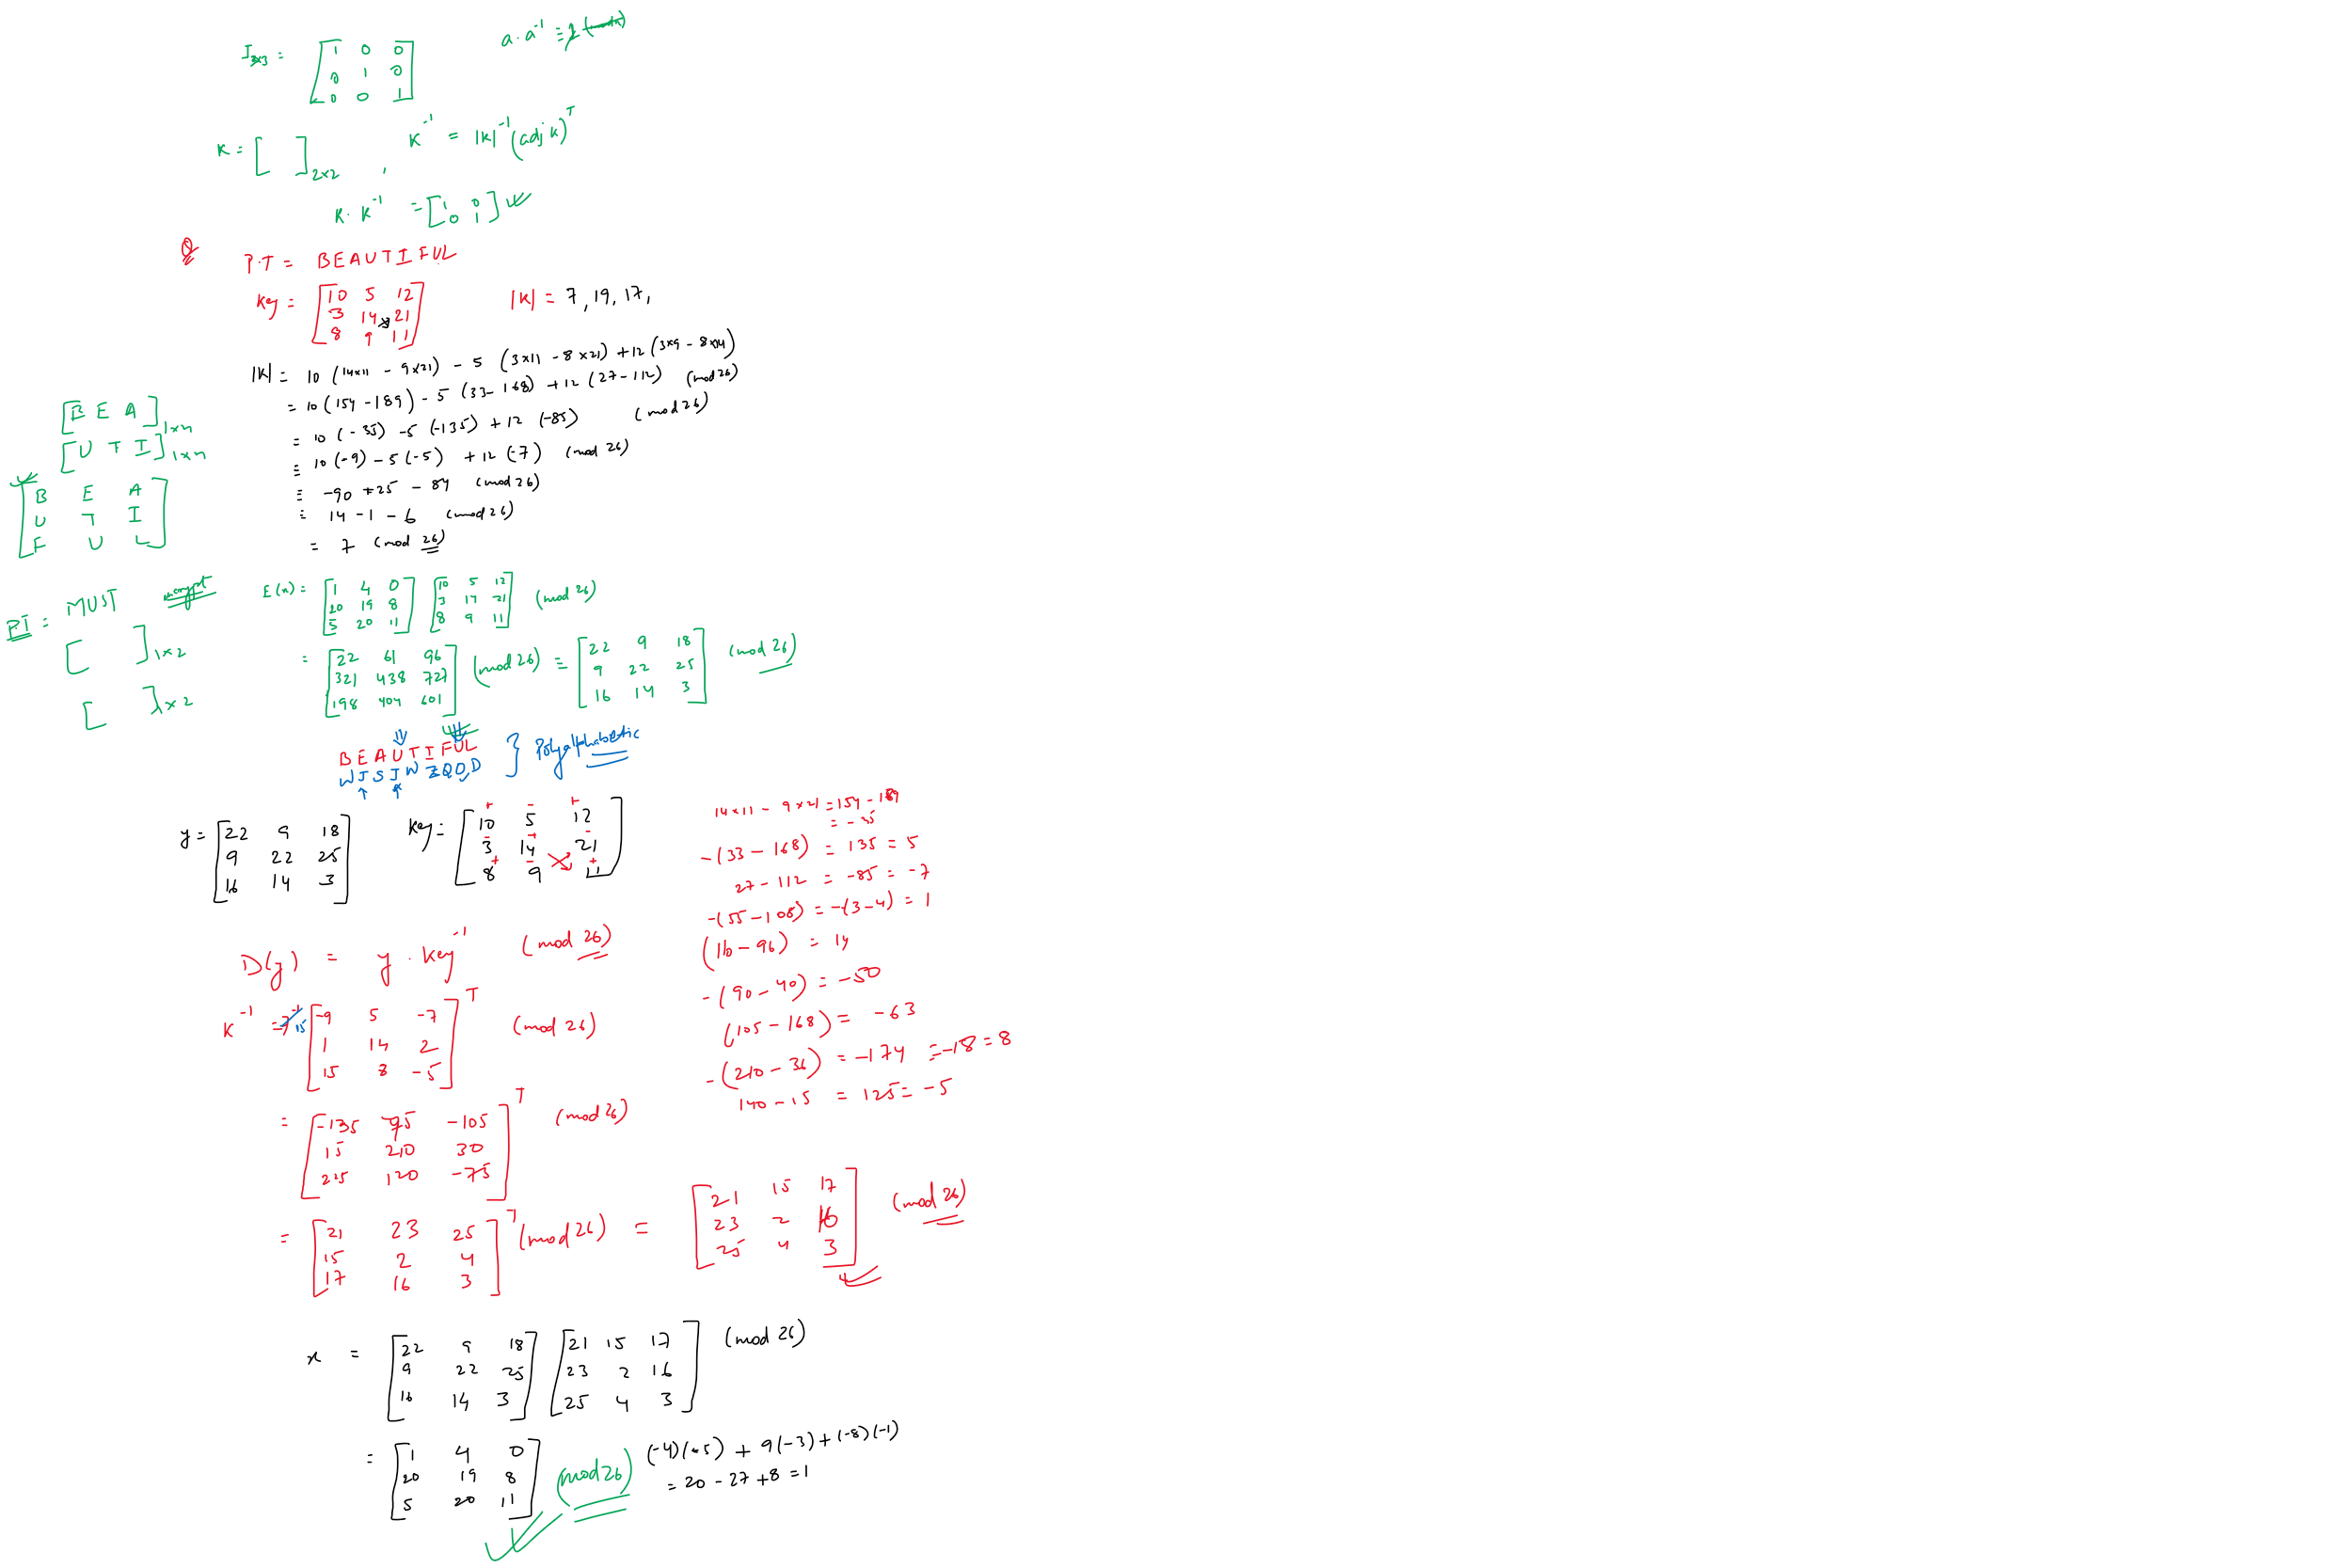 I3×3 = [1 0 0
0 1 0
0 0 1]
a · a⁻¹ ≡ 1 (mod n)
K = [ ]2×2 , K⁻¹ = |K|⁻¹ (adj K)ᵀ
K · K⁻¹ = [1 0
0 1]
Q
P.T = BEAUTIFUL
Key = [10 5 12
3 14 21
8 9 11]
|K| = 7, 19, 17,
|K| = 10 (14×11 - 9×21) - 5 (3×11 - 8×21) + 12 (3×9 - 8×14)
= 10 (154 - 189) - 5 (33 - 168) + 12 (27 - 112) (mod 26)
= 10 (-35) - 5 (-135) + 12 (-85) (mod 26)
≡ 10 (-9) - 5 (-5) + 12 (-7) (mod 26)
≡ -90 + 25 - 84 (mod 26)
≡ 14 - 1 - 6 (mod 26)
= 7 (mod 26)
[B E A]1×n
[U T I]1×n
[B E A
U T I
F U L]
P.T = MUST encrypt
[ ]1×2
[ ]1×2
E(x) = [1 4 0
20 19 8
5 20 11] [10 5 12
3 14 21
8 9 11] (mod 26)
= [22 61 96
321 438 727
198 404 601] (mod 26) ≡ [22 9 18
9 22 25
16 14 3] (mod 26)
B E A U T I F U L
W J S J W Z Q O D } Polyalphabetic
y = [22 9 18
9 22 25
16 14 3]
Key = [10 5 12
3 14 21
8 9 11]
+ - +
- + -
+ - +
14×11 - 9×21 = 154 - 189
= -35
-(33 - 168) = 135 = 5
27 - 112 = -85 = -7
-(55 - 108) = -(3 - 4) = 1
(110 - 96) = 14
-(90 - 40) = -50
(105 - 168) = -63
-(210 - 36) = -174 = -18 = 8
140 - 15 = 125 = -5
D(y) = y · Key⁻¹ (mod 26)
K⁻¹ = 7⁻¹ 15 [-9 5 -7
1 14 2
15 8 -5]ᵀ (mod 26)
= [-135 75 -105
15 210 30
225 120 -75]ᵀ (mod 26)
= [21 23 25
15 2 4
17 16 3]ᵀ (mod 26) = [21 15 17
23 2 16
25 4 3] (mod 26)
x = [22 9 18
9 22 25
16 14 3] [21 15 17
23 2 16
25 4 3] (mod 26)
= [1 4 0
20 19 8
5 20 11] (mod 26)
(-4)(-5) + 9(-3) + (-8)(-1)
= 20 - 27 + 8 = 1